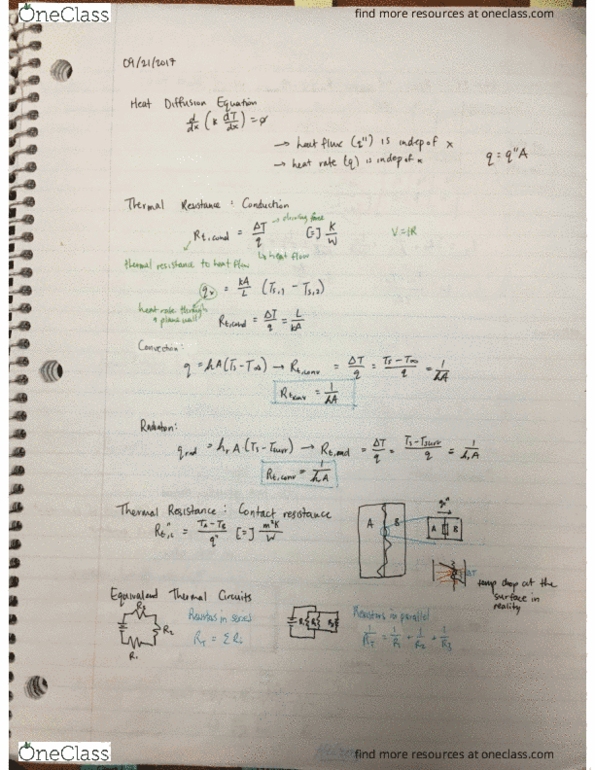 OneClass
find more resources at oneclass.com
09/21/2017
Heat Diffusion Equation
d/dx (k dT/dx) = ø
→ heat flux (q") is indep of x
→ heat rate (q) is indep of x
q = q"A
Thermal Resistance : Conduction
→ driving force
R t,cond = ΔT/q [=] K/W
V = IR
↳ heat flow
thermal resistance to heat flow
qx = kA/L (Ts,1 − Ts,2)
heat rate through a plane wall
Rt,cond = ΔT/q = L/kA
Convection:
q = hA(Ts − T∞) → Rt,conv = ΔT/q = Ts − T∞/q = 1/hA
Rt,conv = 1/hA
Radiation:
q rad = hr A (Ts − Tsurr) → Rt,rad = ΔT/q = Ts − Tsurr/q = 1/hr A
Rt,conv = 1/hrA
Thermal Resistance : Contact resistance
R"t,c = TA − TB/q" [=] m²K/W
A B
q"
A B
ΔT
temp drop at the surface in reality
Equivalent Thermal Circuits
R3
R2
R1
Resistors in series
RT = ΣRi
Resistors in parallel
1/RT = 1/R1 + 1/R2 + 1/R3
OneClass
find more resources at oneclass.com